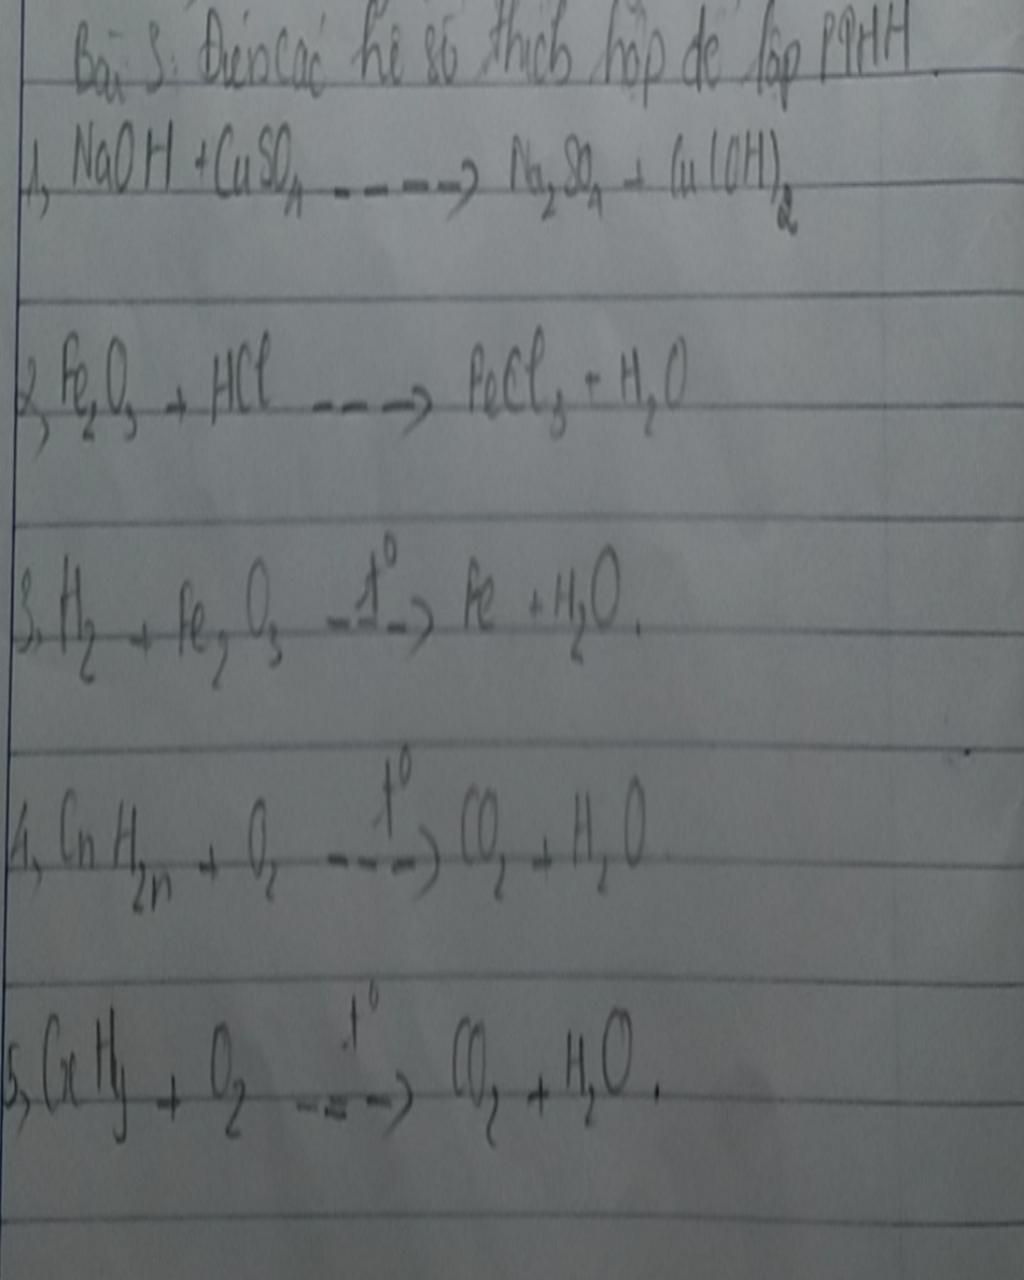 Bài 3: Điền các hệ số thích hợp để lập PTHH.
1, NaOH + CuSO₄ ----> Na₂SO₄ + Cu(OH)₂
2, Fe₂O₃ + HCl ---> FeCl₃ + H₂O
3, H₂ + Fe₂O₃ --t⁰-> Fe + H₂O.
4, CnH₂n + O₂ --t⁰-> CO₂ + H₂O
5, CxHy + O₂ --t⁰-> CO₂ + H₂O.